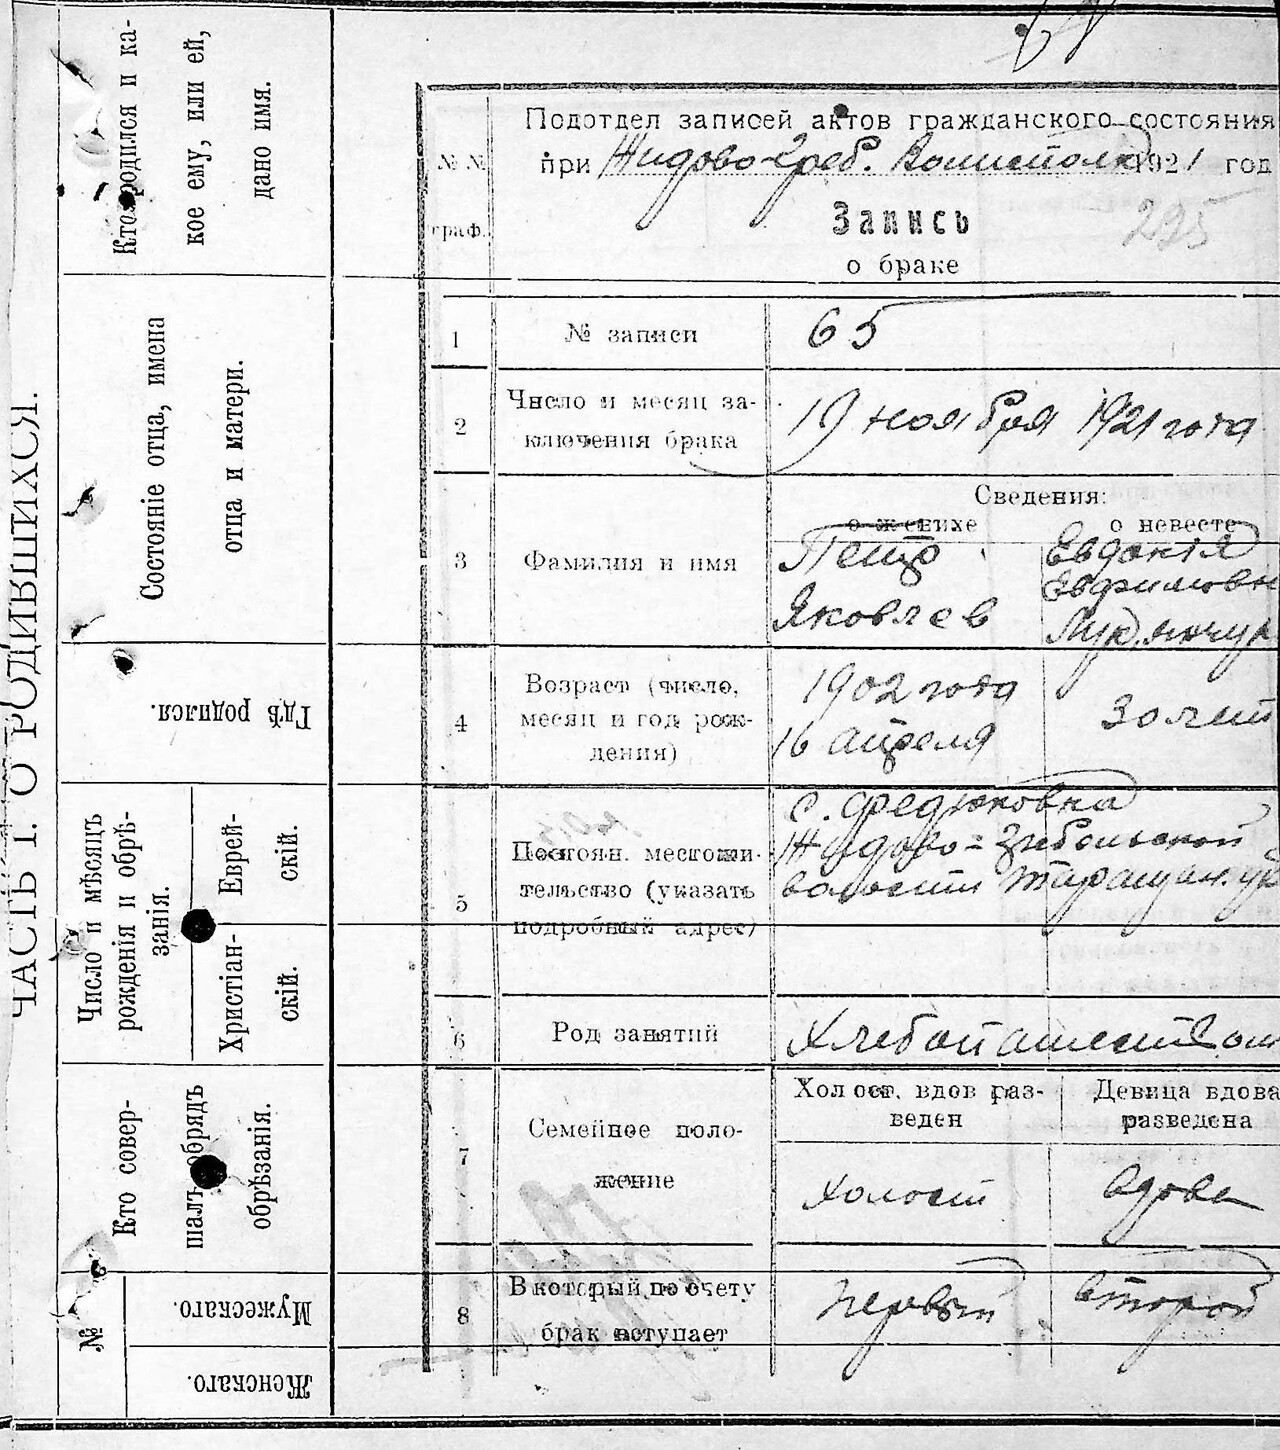 ЧАСТЬ I. О РОДИВШИХСЯ.
Кто родился и ка-
кое ему, или ей,
дано имя.
Состояніе отца, имена
отца и матери.
Гдѣ родился.
Число и мѣсяцъ
рожденія и обрѣ-
занія.
Еврей-
скій.
Христіан-
скій.
Кто совер-
шалъ обрядъ
обрѣзанія.
№
Мужескаго.
Женскаго.
Подотдел записей актов гражданского состояния
при Жидово-Греб. Волисполк 1921 год
№ №
граф.
Запись
295
о браке
1
№ записи
65
2
Число и месяц за-
ключения брака
19 ноября 1921 года
Сведения:
о женихе
о невесте
3
Фамилия и имя
Петр
Яковлев
Евдокія
Евфимовн
4
Возраст (число,
месяц и год рож-
дения)
1902 года
16 апреля
30 лет
5
Постоян. местожи-
тельство (указать
подробный адрес)
с. Федюковка
Жидово-Гребельской
волости Таращан. у
6
Род занятий
Хлебопашест
7
Семейное поло-
жение
Холост. вдов раз-
веден
Девица вдова
разведена
холост
вдова
8
В который по счету
брак вступает
первый
второй